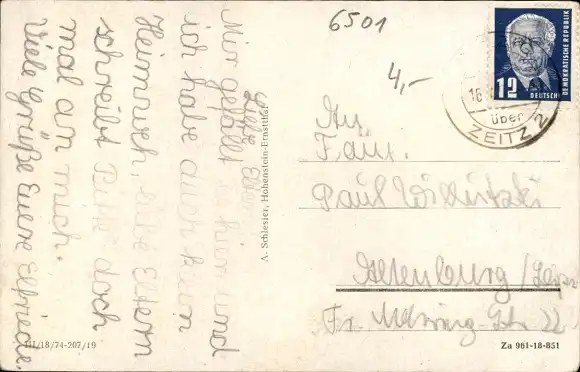 Liebe Eltern
Mir gefällt es hier und
ich habe auch kein
Heimweh, liebe Eltern
schreibt bitte doch
mal an mich.
Viele Grüße Eure Elfriede.
A. Schlesier, Hohenstein-Ernstthal
III/18/74-207/19
6501
4,-
DEUTSCHE DEMOKRATISCHE REPUBLIK
12
16
über
ZEITZ 2
An
Fam.
Paul
Altenburg
Fr.
22
Za 961-18-851